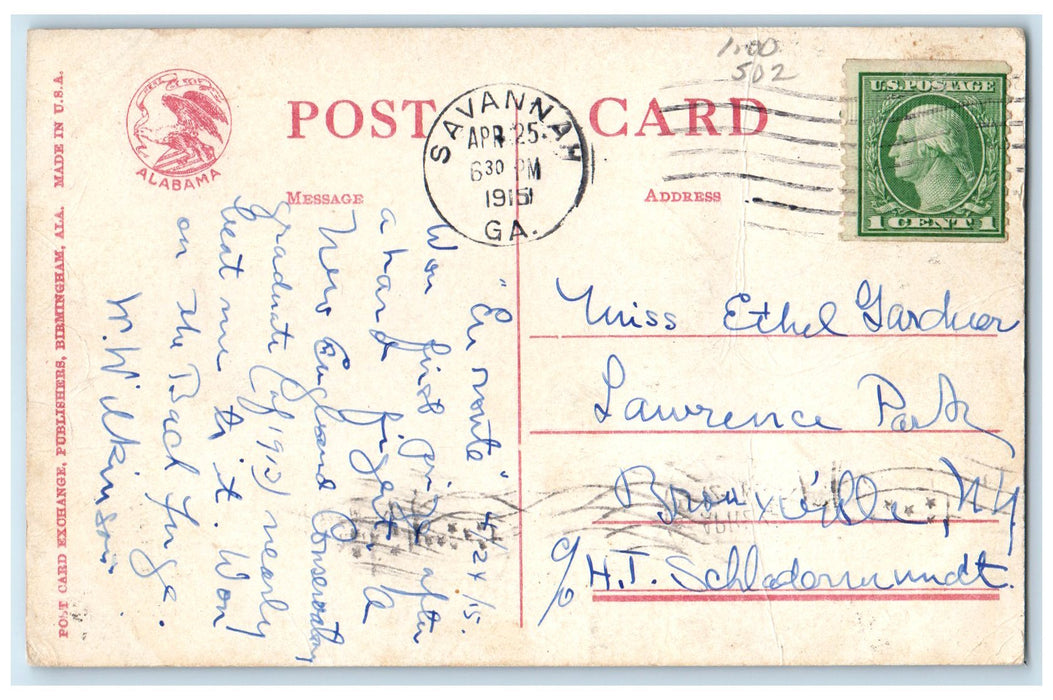 1.00
502
POST CARD
ALABAMA
MESSAGE
ADDRESS
SAVANNAH
APR 25
6 30 PM
1915
GA.
U.S. POSTAGE
1 CENT 1
POST CARD EXCHANGE, PUBLISHERS, BIRMINGHAM, ALA. MADE IN U.S.A.
"En route" 4/24/15.
Won first prize after
a hard fight. A
New England Conservatory
graduate (of 1913) nearly
beat me to it. Won
on the Bach Fuge.
W. Wilkinson.
Miss Ethel Gardner
Lawrence Park
Bronxville, NY
c/o H.T. Schladermundt.